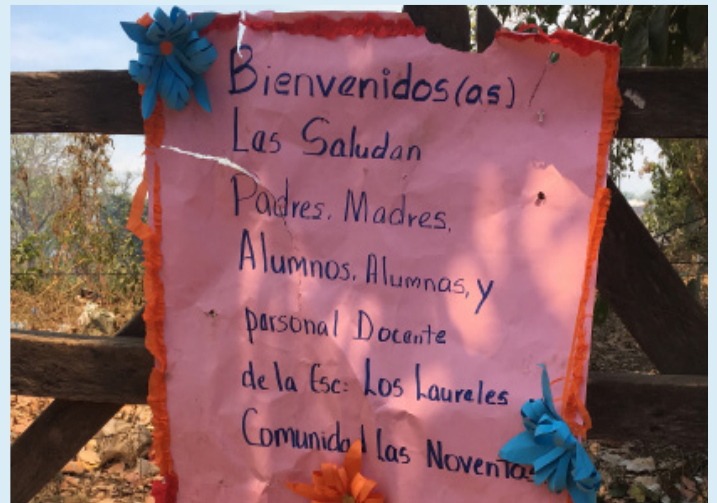 Bienvenidos(as)
Las Saludan
Padres, Madres,
Alumnos, Alumnas, y
personal Docente
de la Esc: Los Laureles
Comunidad las